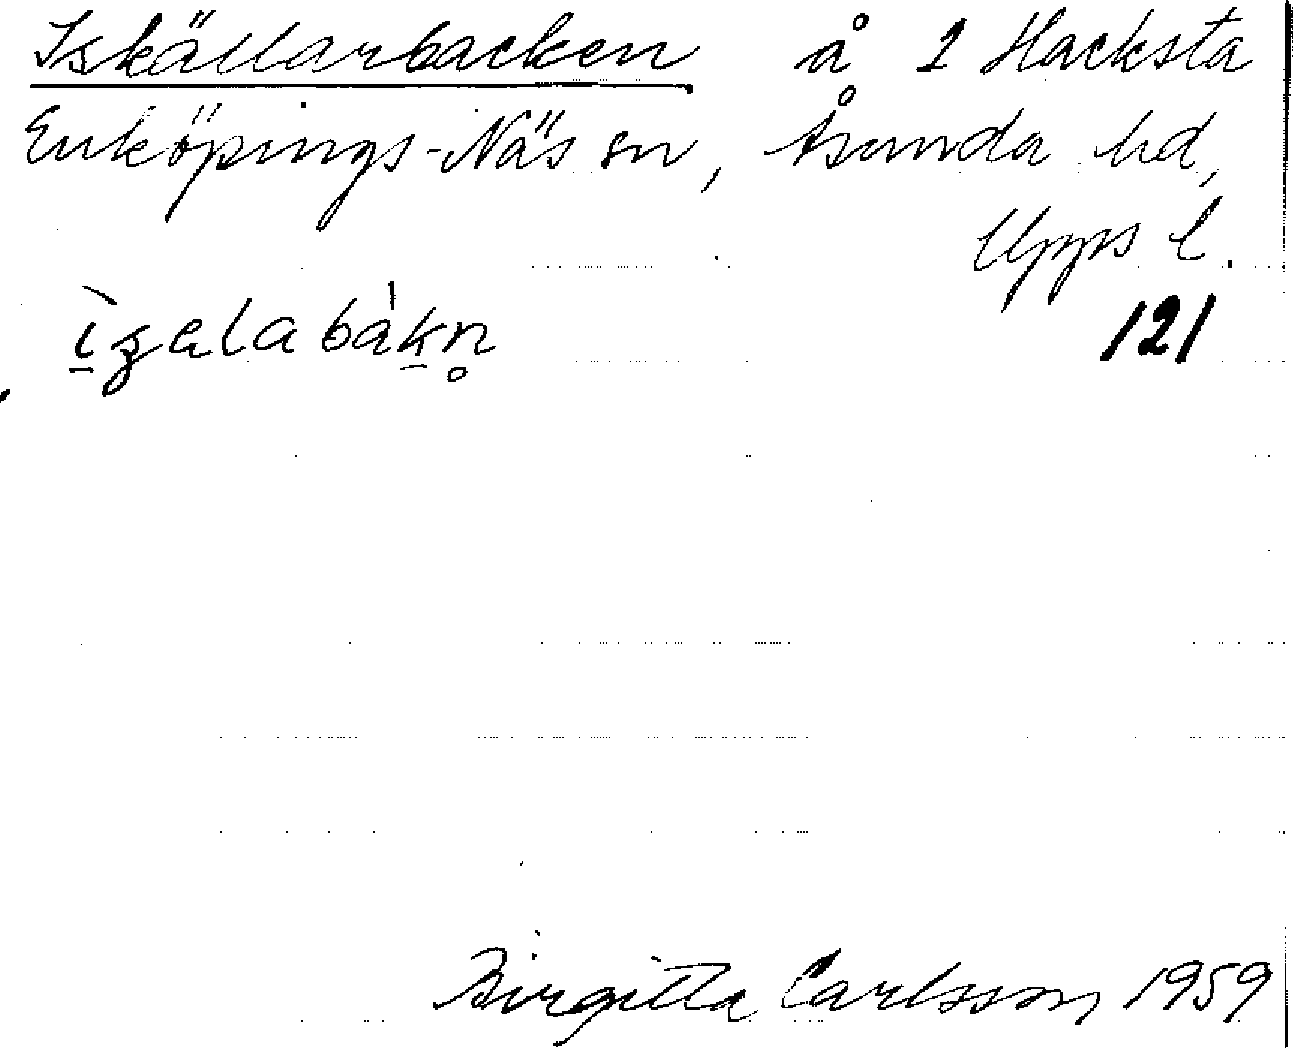 Iskällarbacken å 1 Hacksta
Enköpings-Näs sn, Åsunda hd,
Upps l.
121
Birgitta Carlsson 1959